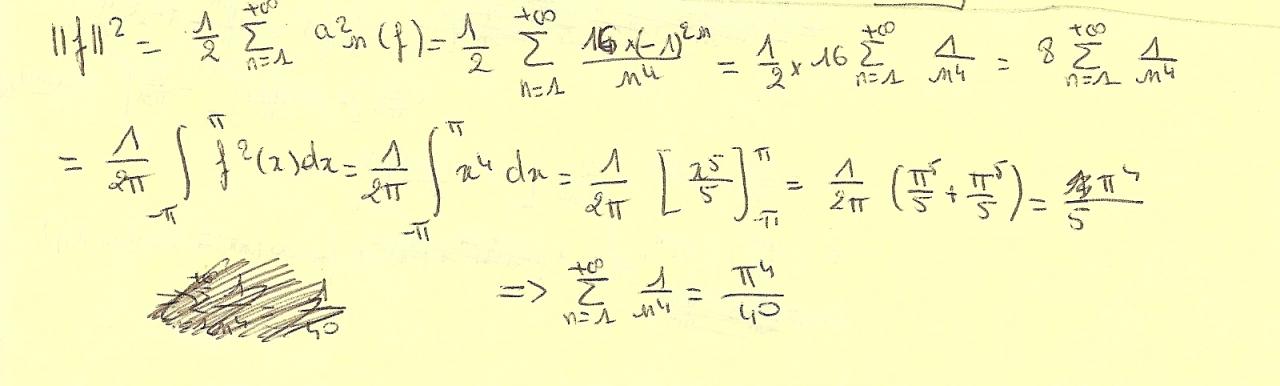 ||f||² = 1/2 Σ_{n=1}^{+∞} a²n(f) = 1/2 Σ_{n=1}^{+∞} 16×(-1)^{2n}/n⁴ = 1/2 × 16 Σ_{n=1}^{+∞} 1/n⁴ = 8 Σ_{n=1}^{+∞} 1/n⁴
= 1/2π ∫_{-π}^{π} f²(x)dx = 1/2π ∫_{-π}^{π} x⁴ dx = 1/2π [x⁵/5]_{-π}^{π} = 1/2π (π⁵/5 + π⁵/5) = π⁴/5
=> Σ_{n=1}^{+∞} 1/n⁴ = π⁴/40